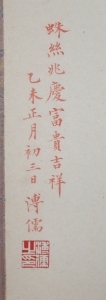 蛛絲兆慶富貴吉祥
乙未正月初三日溥儒
溥儒之印